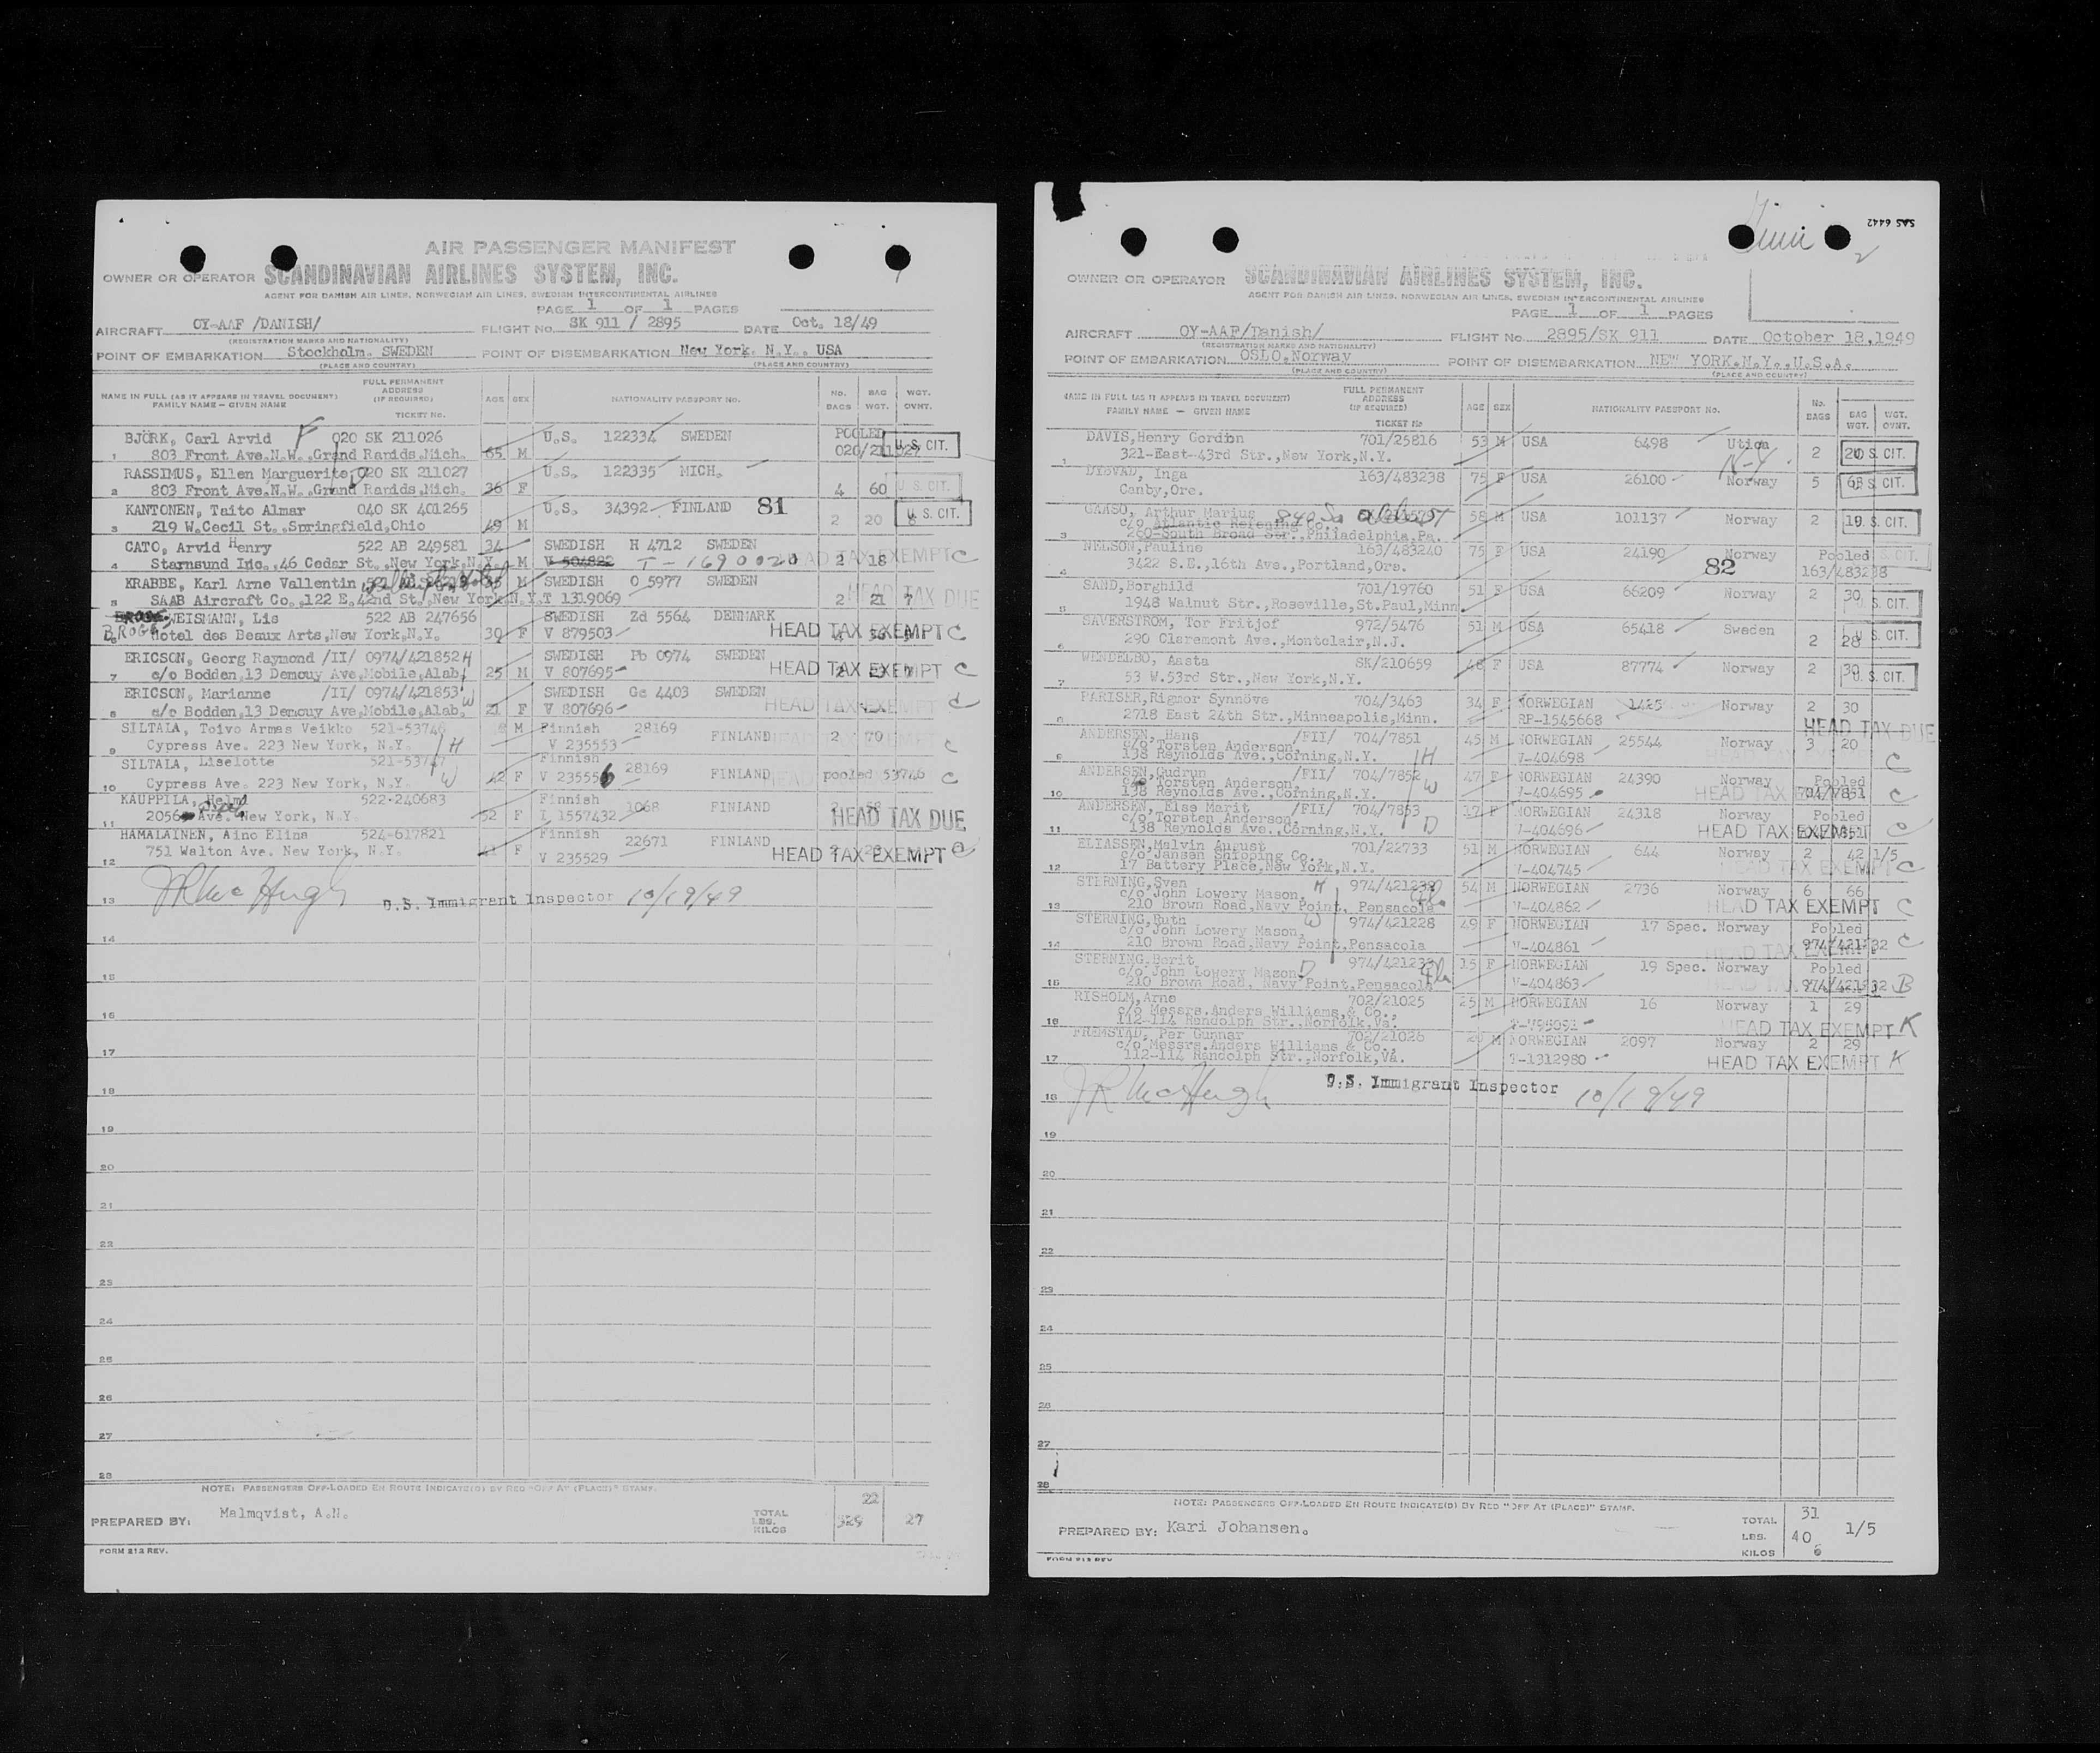 AIR PASSENGER MANIFEST
OWNER OR OPERATOR SCANDINAVIAN AIRLINES SYSTEM, INC.
AGENT FOR DANISH AIR LINES, NORWEGIAN AIR LINES, SWEDISH INTERCONTINENTAL AIRLINES
PAGE 1 OF 1 PAGES
AIRCRAFT OY-AAF /DANISH/ FLIGHT No. SK 911 / 2895 DATE Oct. 18/49
(REGISTRATION MARKS AND NATIONALITY)
POINT OF EMBARKATION Stockholm. SWEDEN POINT OF DISEMBARKATION New York. N.Y.. USA
(PLACE AND COUNTRY) (PLACE AND COUNTRY)
NAME IN FULL (AS IT APPEARS IN TRAVEL DOCUMENT) FAMILY NAME - GIVEN NAME FULL PERMANENT ADDRESS (IF REQUIRED) TICKET No. AGE SEX NATIONALITY PASSPORT NO. No. BAGS BAG WGT. WGT. OVHT.
BJÖRK, Carl Arvid F 020 SK 211026 U.S. 122334 SWEDEN POOLED
1 803 Front Ave.N.W.,Grand Rapids,Mich. 65 M 020/211027 U.S. CIT.
RASSIMUS, Ellen Marguerite D 020 SK 211027 U.S. 122335 MICH.
2 803 Front Ave.N.W.,Grand Rapids,Mich. 36 F 4 60 U.S. CIT.
KANTONEN, Taito Almar 040 SK 401265 U.S. 34392 FINLAND 81
3 219 W.Cecil St.,Springfield,Ohio 49 M 2 20 U.S. CIT.
CATO, Arvid Henry 522 AB 249581 34 SWEDISH H 4712 SWEDEN HEAD TAX EXEMPT C
4 Starnsund Inc.,46 Cedar St.,New York,N.Y. M V 504822 T-1690020 2 18
KRABBE, Karl Arne Vallentin 35 M SWEDISH O 5977 SWEDEN
5 SAAB Aircraft Co.,122 E.42nd St.,New York,N.Y. T 1319069 2 21 7 HEAD TAX DUE
WEISMANN, Lis 522 AB 247656 SWEDISH Zd 5564 DENMARK
6 Hotel des Beaux Arts,New York,N.Y. 30 F V 879503 HEAD TAX EXEMPT C
ERICSON, Georg Raymond /II/ 0974/421852 H SWEDISH Pb 0974 SWEDEN
7 c/o Bodden,13 Demouy Ave,Mobile,Alab. 25 M V 807695 HEAD TAX EXEMPT C
ERICSON, Marianne /II/ 0974/421853 W SWEDISH Gc 4403 SWEDEN
8 c/o Bodden,13 Demouy Ave,Mobile,Alab. 21 F V 807696 HEAD TAX EXEMPT C
SILTALA, Toivo Armas Veikko 521-53746 M Finnish 28169
9 Cypress Ave. 223 New York, N.Y. H V 235553 FINLAND 2 70 C
SILTALA, Liselotte Finnish
10 Cypress Ave. 223 New York, N.Y. W 42 F V 235556 28169 FINLAND pooled 53746 C
KAUPPILA, Helmi 522-240683 Finnish
11 2056 Ave. New York, N.Y. 52 F I 1557432 1068 FINLAND HEAD TAX DUE
HAMALAINEN, Aino Elina 524-617821 Finnish
12 751 Walton Ave. New York, N.Y. F V 235529 22671 FINLAND HEAD TAX EXEMPT C
13 JR McHugh U.S. Immigrant Inspector 10/19/49
14
15
16
17
18
19
20
21
22
23
24
25
26
27
28
NOTE: PASSENGERS OFF-LOADED EN ROUTE INDICATE(D) BY RED "OFF AT (PLACE)" STAMP.
PREPARED BY: Malmqvist, A.N. TOTAL LBS. KILOS 22 329 27
FORM 212 REV.
SAS 6442
2
OWNER OR OPERATOR SCANDINAVIAN AIRLINES SYSTEM, INC.
AGENT FOR DANISH AIR LINES, NORWEGIAN AIR LINES, SWEDISH INTERCONTINENTAL AIRLINES
PAGE 1 OF 1 PAGES
AIRCRAFT OY-AAF/Danish/ FLIGHT No. 2895/SK 911 DATE October 18,1949
(REGISTRATION MARKS AND NATIONALITY)
POINT OF EMBARKATION OSLO.Norway POINT OF DISEMBARKATION NEW YORK.N.Y..U.S.A.
(PLACE AND COUNTRY) (PLACE AND COUNTRY)
NAME IN FULL (AS IT APPEARS IN TRAVEL DOCUMENT) FAMILY NAME — GIVEN NAME FULL PERMANENT ADDRESS (IF REQUIRED) TICKET No AGE SEX NATIONALITY PASSPORT No. No. BAGS BAG WGT. WGT. OVHT.
DAVIS,Henry Gordon 701/25816 53 M USA 6498 Utica
1 321-East-43rd Str.,New York,N.Y. N-Y. 2 20 U.S. CIT.
DYSVAD, Inga 163/483238 75 F USA 26100 Norway 5 68 U.S. CIT.
Canby,Ore.
Arthur Marius 58 M USA 101137 Norway 2 19 U.S. CIT.
c/o Atlantic Refening Co.,
3 260-South Broad Str.,Philadelphia,Pa.
NELSON,Pauline 163/483240 75 F USA 24190 Norway Pooled U.S. CIT.
4 3422 S.E.,16th Ave.,Portland,Ore. 82 163/483238
SAND,Borghild 701/19760 51 F USA 66209 Norway 2 30 U.S. CIT.
5 1948 Walnut Str.,Roseville,St.Paul,Minn
SAVERSTROM, Tor Fritjof 972/5476 51 M USA 65418 Sweden
6 290 Claremont Ave.,Montclair,N.J. 2 28 U.S. CIT.
WENDELBO, Aasta SK/210659 48 F USA 87774 Norway 2 30 U.S. CIT.
7 53 W.53rd Str.,New York,N.Y.
PARISER,Rigmor Synnöve 704/3463 34 F NORWEGIAN 1425 Norway 2 30
8 2718 East 24th Str.,Minneapolis,Minn. RP-1545668 HEAD TAX DUE
ANDERSEN, Hans /FII/ 704/7851 45 M NORWEGIAN 25544 Norway 3 20
c/o Torsten Anderson,
9 138 Reynolds Ave.,Corning,N.Y. H V-404698 C
ANDERSEN,Gudrun /FII/ 704/7852 47 F NORWEGIAN 24390 Norway Pooled
c/o Torsten Anderson,
10 138 Reynolds Ave.,Corning,N.Y. W V-404695 HEAD TAX EXEMPT 704/7851 C
ANDERSEN, Else Marit /FII/ 704/7853 17 F NORWEGIAN 24318 Norway Pooled
c/o Torsten Anderson,
11 138 Reynolds Ave.,Corning,N.Y. D V-404696 HEAD TAX EXEMPT C
ELIASSEN,Malvin August 701/22733 51 M NORWEGIAN 644 Norway 2 42 1/5
c/o Jansen Shipping Co.,
12 17 Battery Place,New York,N.Y. V-404745 HEAD TAX EXEMPT C
STERNING,Sven H 974/421232 54 M NORWEGIAN 2736 Norway 6 66
c/o John Lowery Mason,
13 210 Brown Road,Navy Point, Pensacola Fla. V-404862 HEAD TAX EXEMPT C
STERNING,Ruth W 974/421228 49 F NORWEGIAN 17 Spec. Norway Pooled
c/o John Lowery Mason,
14 210 Brown Road,Navy Point,Pensacola V-404861 974/421232 C
STERNING,Berit D 15 F NORWEGIAN 19 Spec. Norway Pooled
c/o John Lowery Mason
15 210 Brown Road, Navy Point,Pensacola Fla V-404863 974/421232 B
RISHOLM,Arne 702/21025 25 M NORWEGIAN 16 Norway 1 29
c/o Messrs.Anders Williams,& Co.,
16 112-114 Randolph Str.,Norfolk,Va. HEAD TAX EXEMPT K
FREMSTAD, Per Gunnar 702/21026 M NORWEGIAN 2097 Norway 2 29
c/o Messrs.Anders Williams & Co.
17 112-114 Randolph Str.,Norfolk,Va. T-1312980 HEAD TAX EXEMPT K
18 JR McHugh U.S. Immigrant Inspector 10/19/49
19
20
21
22
23
24
25
26
27
28
NOTE: PASSENGERS OFF-LOADED EN ROUTE INDICATE(D) BY RED "OFF AT (PLACE)" STAMP.
PREPARED BY: Kari Johansen. TOTAL LBS. KILOS 31 406 1/5
FORM 212 REV